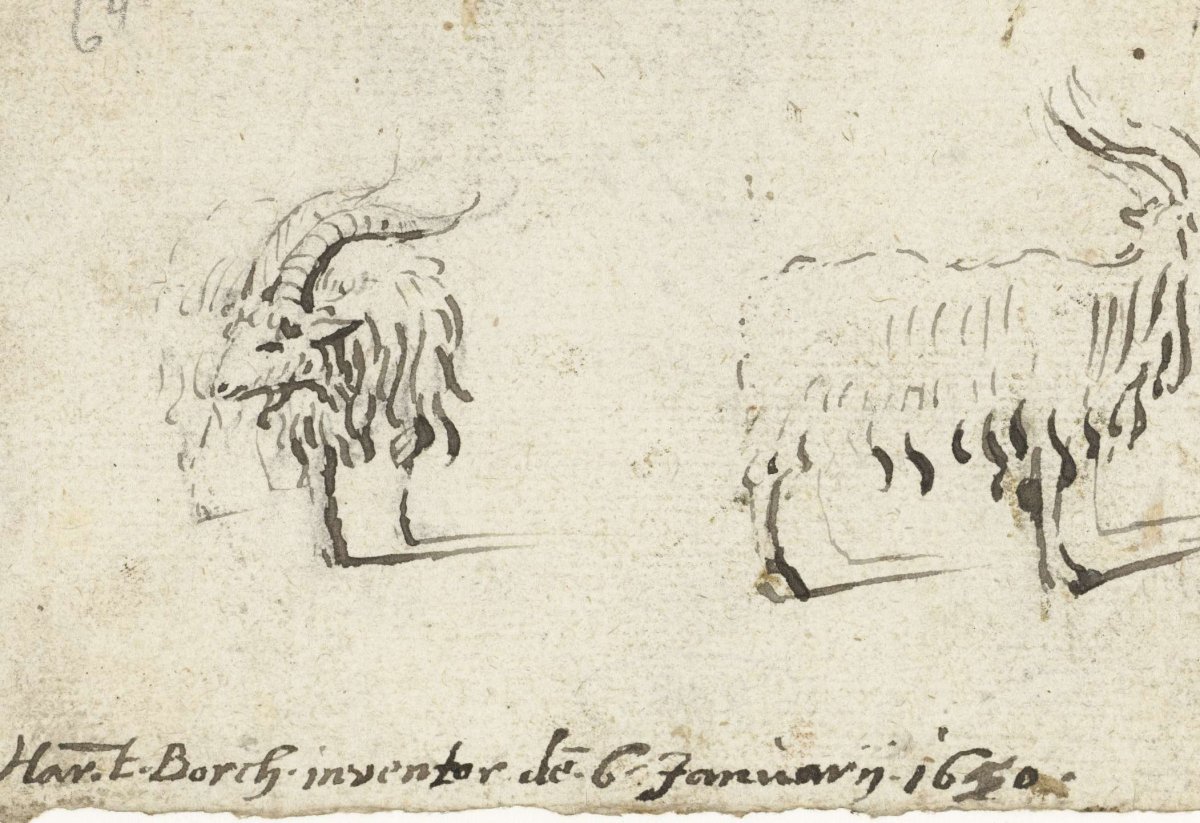 Har̄.t. Borch. inventor. dē. 6. Januarij. 1650.